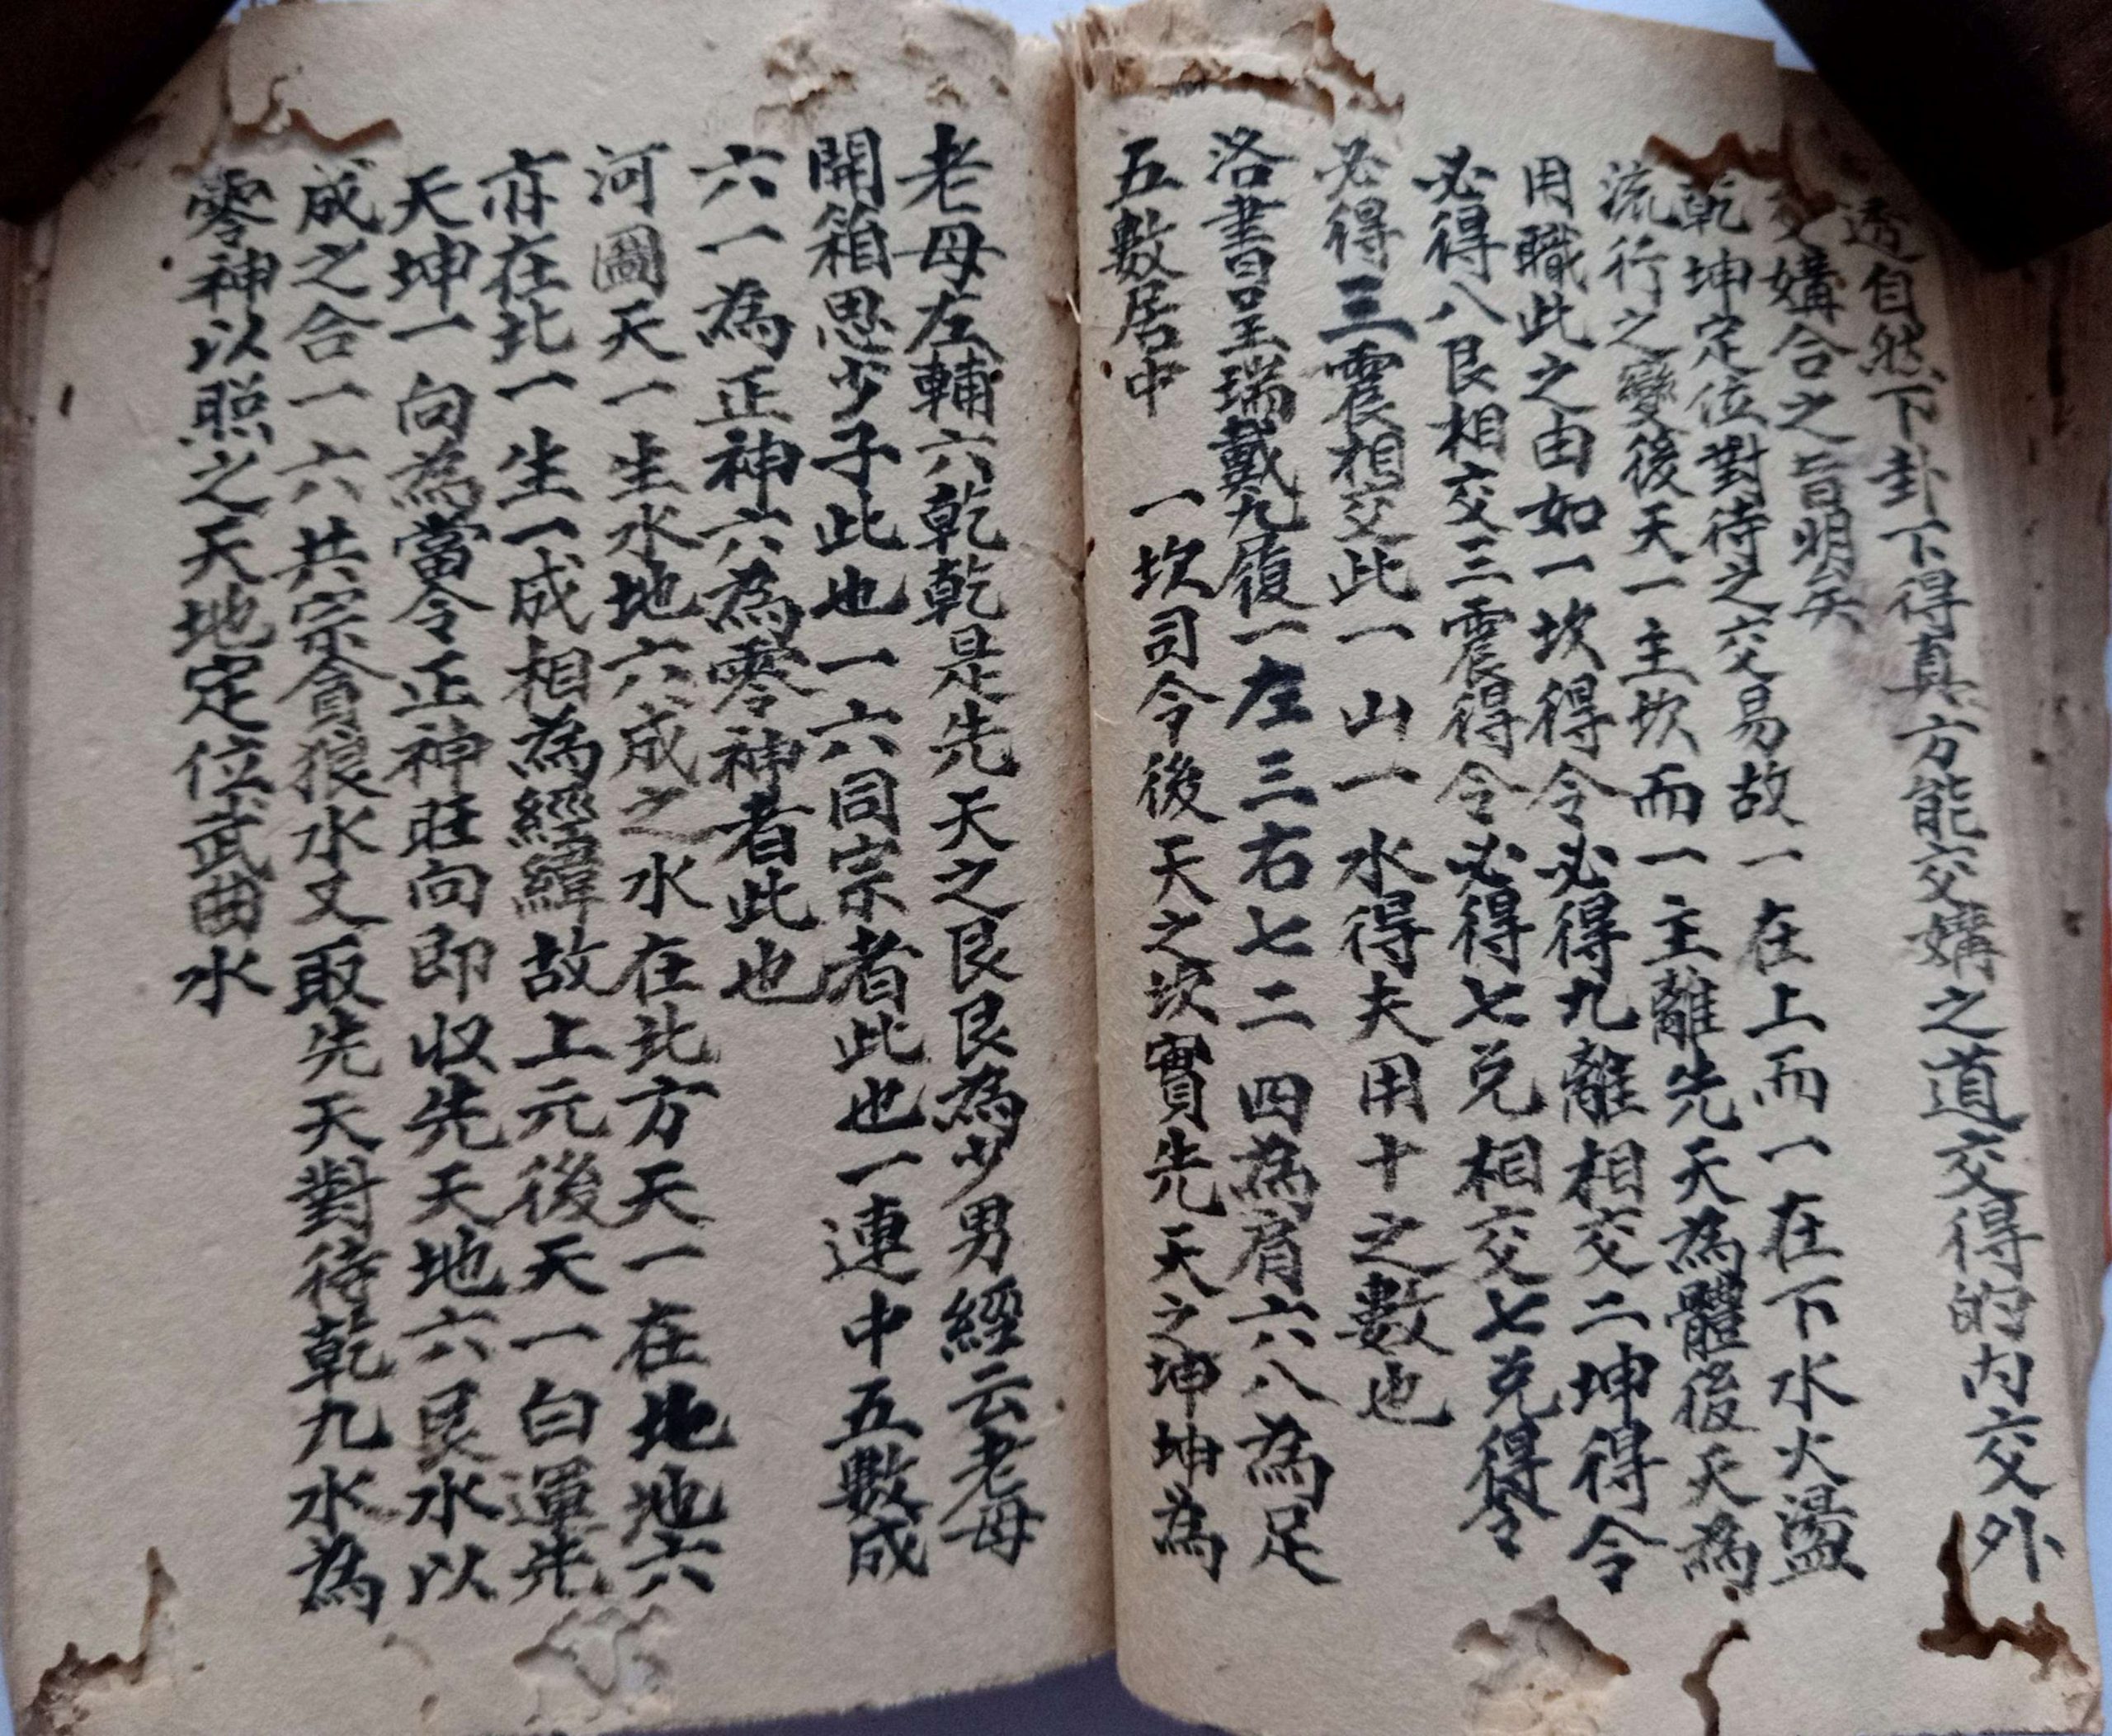 透自然下卦下得真方能交媾之道交得的内交外
交媾合之旨明矣
乾坤定位對待之交易故一在上而一在下水火盪
流行之變後天一主坎而一主離先天為體後天為
用職此之由如一坎得令必得九離相交二坤得令
必得八艮相交三震得令必得七兌相交七兌得令
必得三震相交此一山一水得夫用十之數也
洛書呈瑞戴九履一左三右七二四為肩六八為足
五數居中　一坎司令後天之坎實先天之坤坤為
老母左輔六乾乾是先天之艮艮為少男經云老母
開箱思少子此也一六同宗者此也一連中五數成
六一為正神六為零神者此也
河圖天一生水地六成之水在北方天一在地地六
亦在北一生一成相為經緯故上元後天一白運先
天坤一向為當令正神旺向即收先天地六艮水以
成之合一六共宗貪狼水又取先天對待乾九水為
零神以照之天地定位武曲水